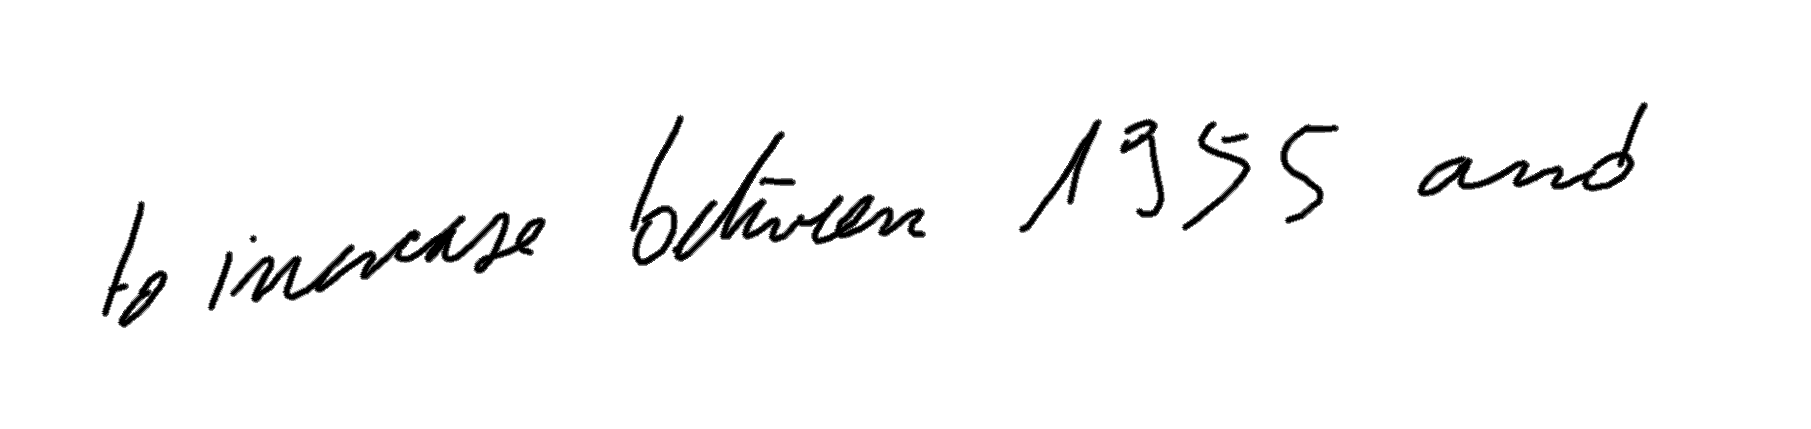 to increase between 1955 and